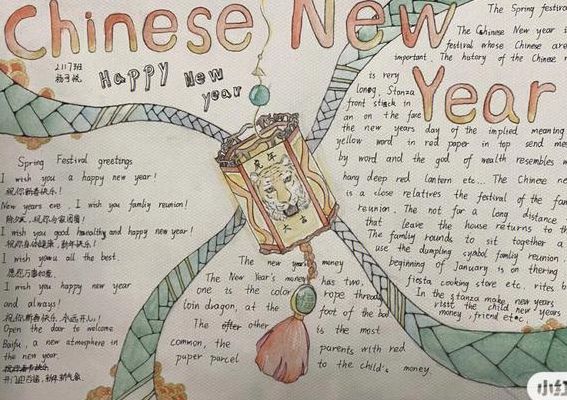 Chinese New
Year
2117班
Happy New
year
Spring Festival greetings
I wish you a happy new year!
祝你新春快乐!
New years eve, I wish you famliy reunion!
除夕夜,祝你合家团圆!
I wish you good healthy and happy new year!
祝你身体健康,新年快乐!
I wish you all the best.
愿您万事如意.
I wish you happy new year
and always!
祝你新春快乐,永远开心!
Open the door to welcome
Baifu, a new atmosphere in
the new year.
开门迎百福,新年新气象
虎年
大吉
The Spring festival
The Chinese New year is
festival whose Chinese are
important. The history of the Chinese
is very
long, Stanza
front stick in
an on the fare
the new years day of the implied meaning
yellow word in red paper in top send me
by word and the god of wealth resembles w
hang deep red lantern etc... The Chinese ne
is a close relatives the festival of the fam
reunion. The not for a long distance
that leave the house returns to th
The famliy rounds to sit together a
use the dumpling symbol famliy reunion
beginning of January is on thering
fiesta cooking store etc. rites b
In the stanza make new years
visit the child new years
money, friend etc.
The new years money
The New Year's money has two,
one is the color rope thread,
loin dragon, at the foot of the bo
The other is the most
common, the parents with red
paper parcel to the child's money.
小红